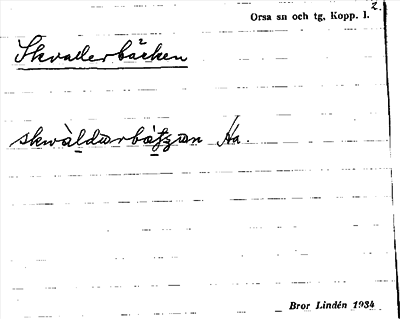 Orsa sn och tg, Kopp. l. 2.
Skvallerbäcken
skwàldərbätʒən Ha.
Bror Lindén 1934